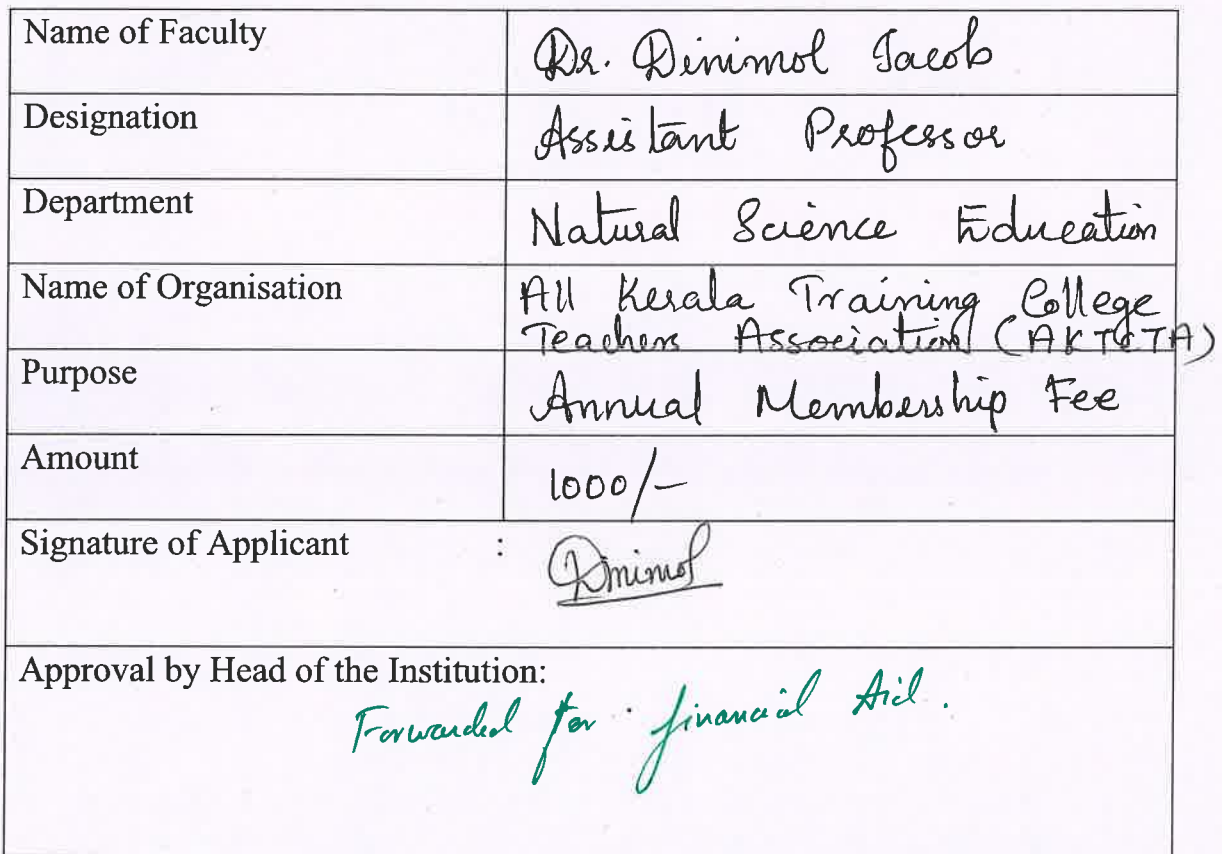 Name of Faculty Dr. Dinimol Jacob
Designation Assistant Professor
Department Natural Science Education
Name of Organisation All Kerala Training College
Teachers Association (AKTCTA)
Purpose Annual Membership Fee
Amount 1000/-
Signature of Applicant : Dinimol
Approval by Head of the Institution:
Forwarded for financial Aid.